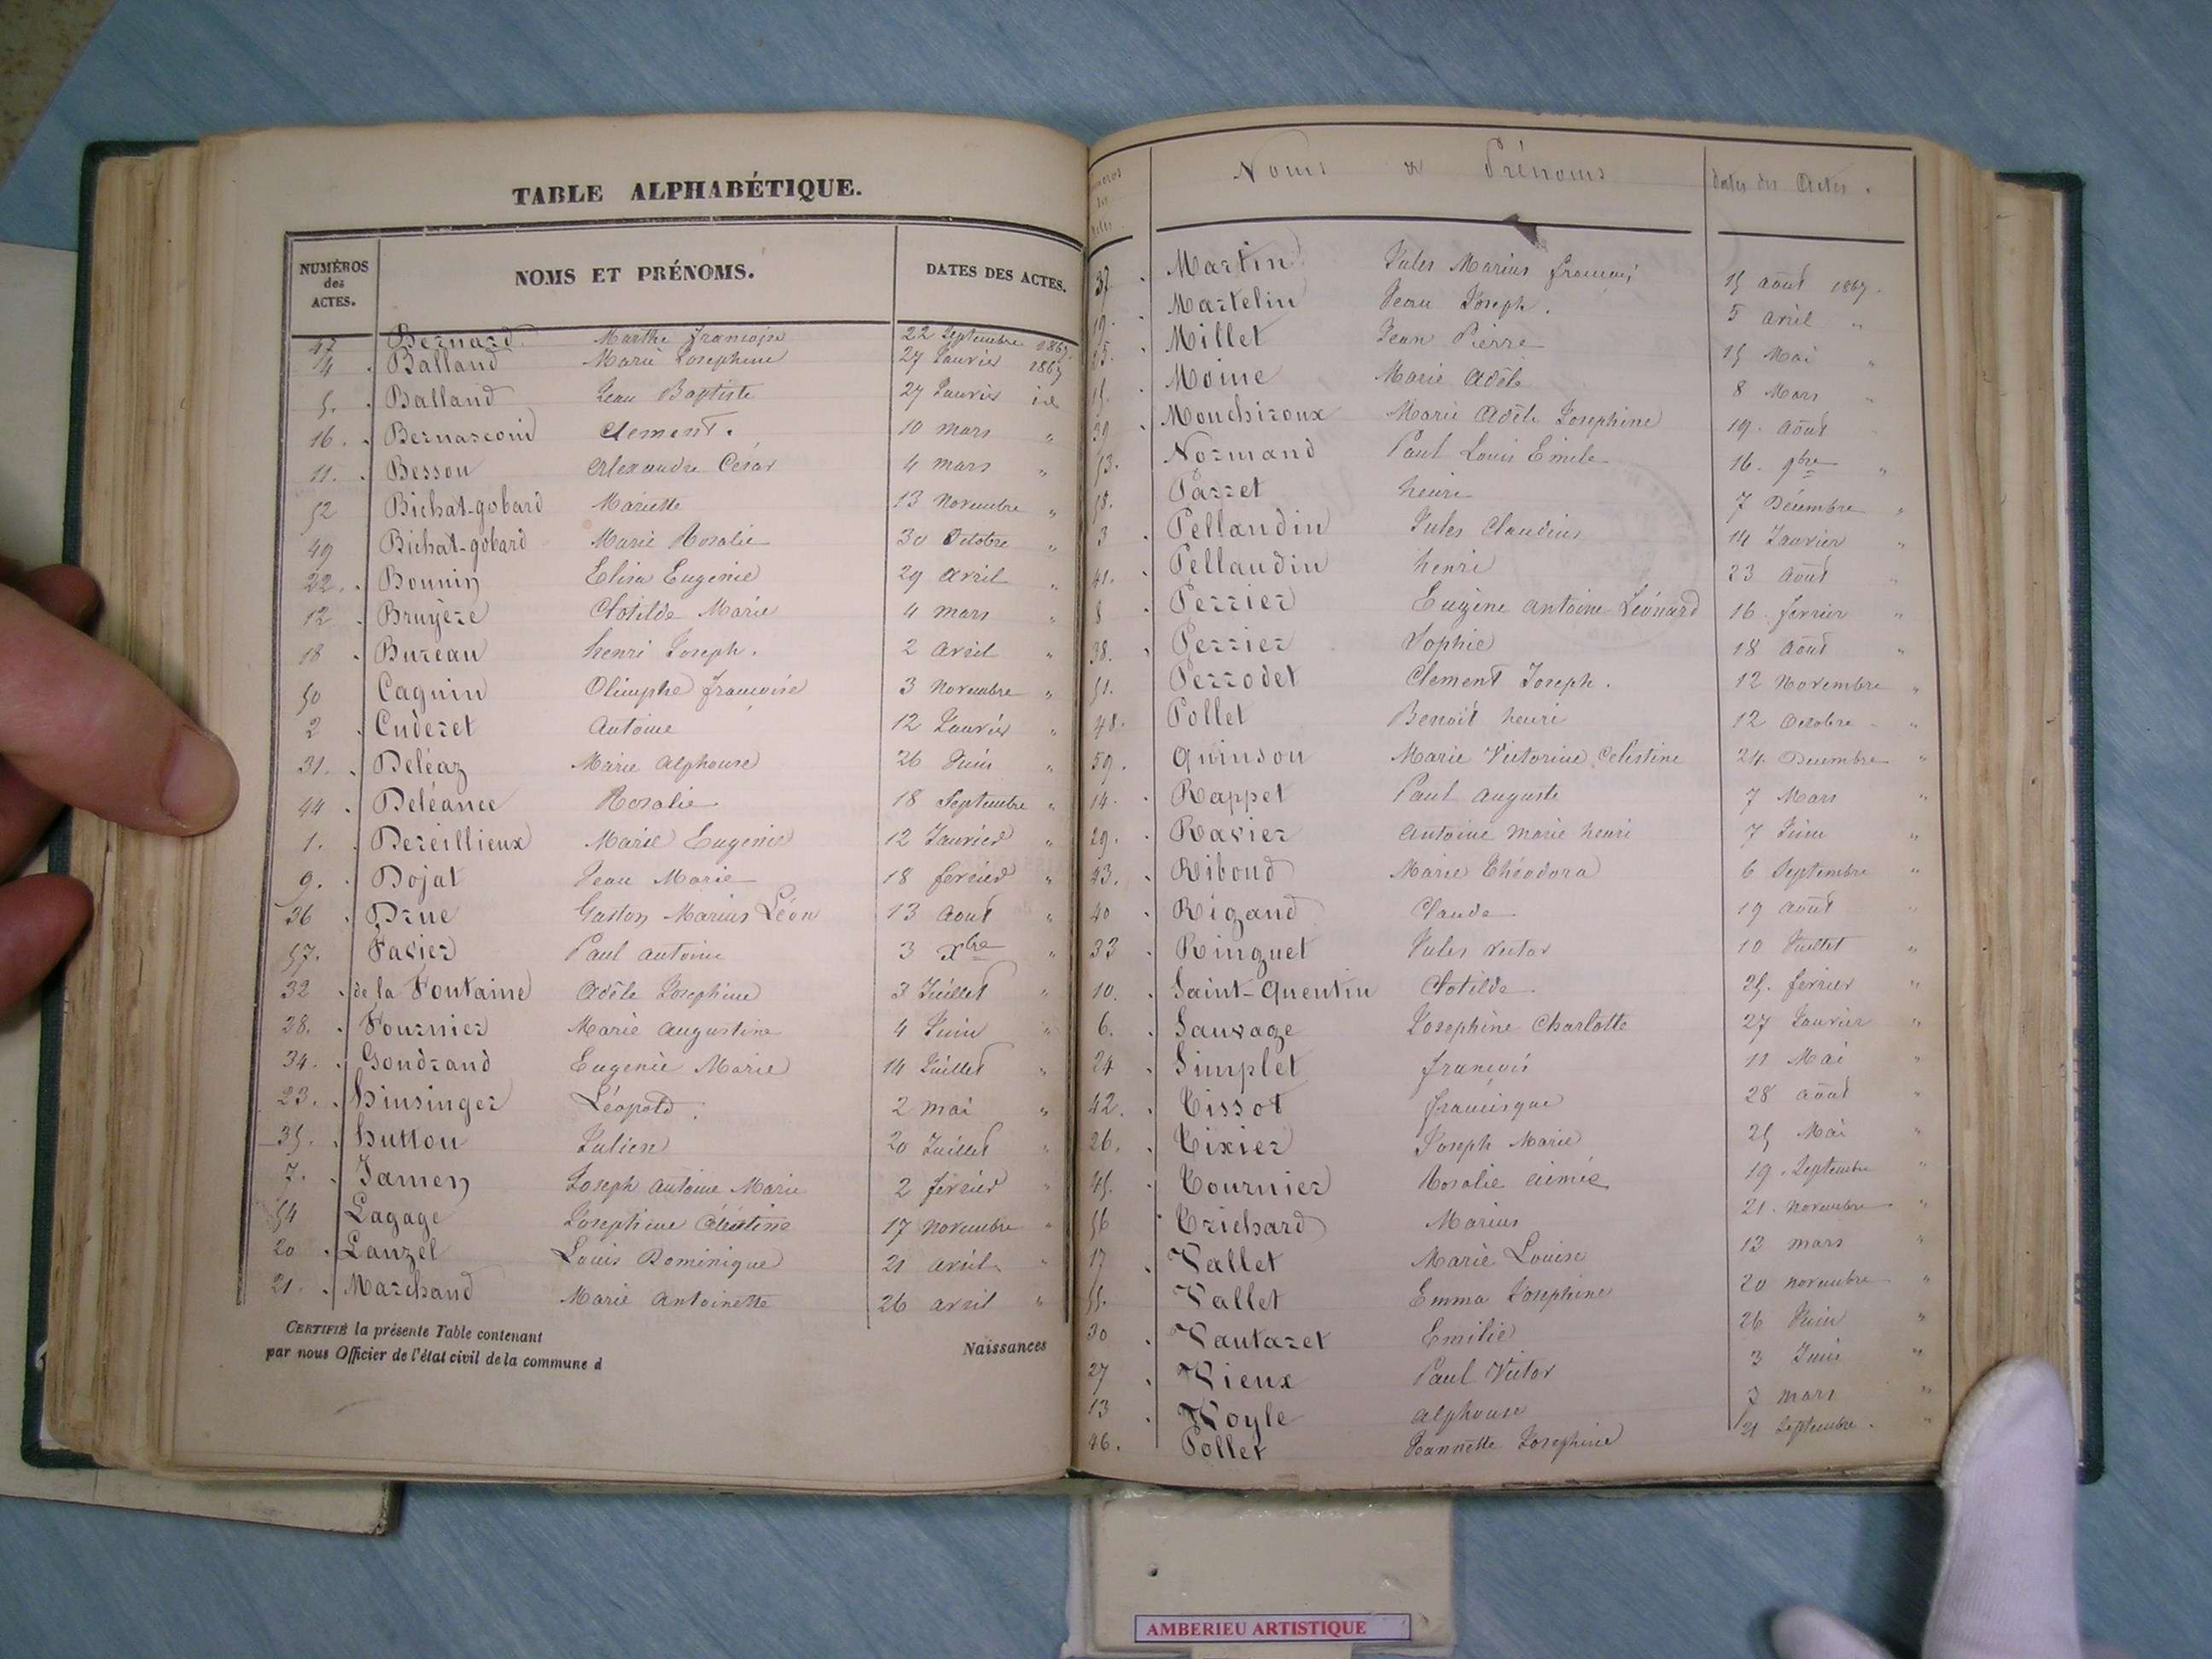 TABLE ALPHABÉTIQUE.
NUMÉROS des ACTES. NOMS ET PRÉNOMS. DATES DES ACTES.
47 Bernard Marthe françoise 22 Septembre 1867.
4 . Balland Marie Josephine 27 Janvier 1867
5. . Balland Jean Baptiste 27 Janvier id
16. . Bernasconi Clement. 10 mars "
11. . Besson Alexandre César 4 mars "
52 Bichat-gobard Mariette 13 Novembre "
49 Bichat-gobard Marie Rosalie 30 Octobre "
22. . Bonnin Elisa Eugenie 29 avril "
12 . Bruyère Clotilde Marie 4 mars "
18 . Bureau henri Joseph. 2 avril "
50 Cagnin Olimphe françoise 3 Novembre "
2 . Cuderet Antoine 12 Janvier "
31. . Deléaz Marie Alphonse 26 Juin "
44 . Deléance Rosalie 18 Septembre "
1. . Dereillieux Marie Eugenie 12 Janvier "
9. . Dojat Jean Marie 18 février "
36 . Drue Gaston Marius Léon 13 Aout "
57. Favier Paul Antoine 3 Xbre "
32 . de la Fontaine Adèle Josephine 3 Juillet "
28. . Fournier Marie Augustine 4 Juin "
34. . Gondrand Eugenie Marie 14 Juillet "
23. . hinsinger Léopold. 2 mai "
35. . hutton Julien 20 Juillet "
7. . Jamen Joseph Antoine Marie 2 février "
54 Lagage Josephine Célestine 17 novembre "
20 . Lanzel Louis Dominique 21 avril "
21. . Marchand Marie Antoinette 26 avril "
CERTIFIÉ la présente Table contenant Naissances
par nous Officier de l'état civil de la commune d
Numéros des actes Noms & Prénoms Dates des Actes.
37. . Martin Jules Marius françois 15 aout 1867.
19. . Martelin Jean Joseph. 5 avril "
25. . Millet Jean Pierre 15 Mai "
15. . Moine Marie Adèle 8 Mars "
39 . Monchiroux Marie Adèle Josephine 19. Août
53. Normand Paul Louis Emile 16. 9bre "
58. Parret henri 7 Décembre "
3 . Pellaudin Jules Claudius 14 Janvier "
41. . Pellaudin henri 23 Août "
8 . Perrier Eugène Antoine Léonard 16 février "
38. . Perrier Sophie 18 Aout "
51. Perrodet Clement Joseph. 12 Novembre "
48. Pollet Benoît henri 12 Octobre "
59. Quinson Marie Victorine Celestine 24 Decembre "
14. . Rappet Paul Auguste 7 Mars "
29. . Ravier Antoine Marie henri 7 Juin "
43. . Riboud Marie Théodora 6 Septembre "
40 . Rigaud Claude 19 Août "
33 . Ringuet Jules Victor 10 Juillet "
10. . Saint-Quentin Clotilde. 25. février "
6. . Sauvage Josephine Charlotte 27 Janvier "
24 . Simplet françois 11 Mai "
42. . Tissot francisque 28 aout "
26. . Tixier Joseph Marie 25 Mai "
45. . Tournier Rosalie Aimée 19. Septembre "
56 . Trichard Marius 21. Novembre "
17 . Vallet Marie Louise 13 mars "
55. . Vallet Emma Josephine 20 novembre "
30 . Vautaret Emilie 26 Juin "
27 . Vieux Paul Victor 3 Juin "
13 . Voyle Alphonse 7 mars "
46. Pollet Jeannette Josephine 21 Septembre. "
AMBERIEU ARTISTIQUE